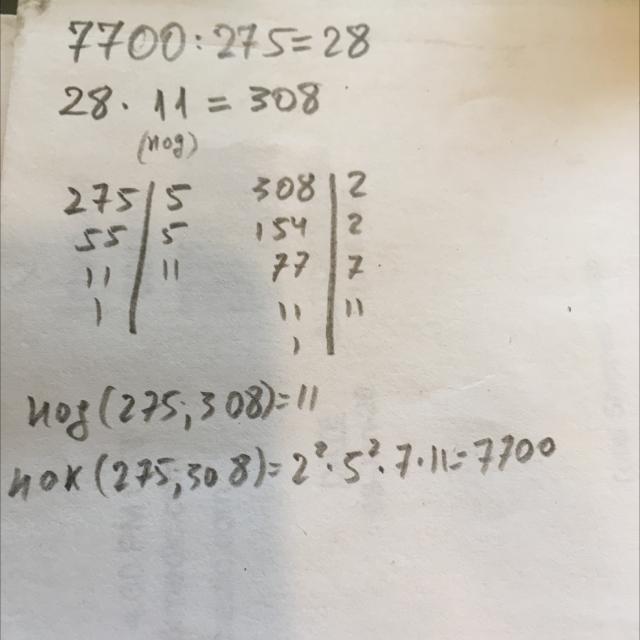 7700:275=28
28·11=308
(нод)
275|5 308|2
55|5 154|2
11|11 77|7
1| 11|11
1|
нод(275;308)=11
нок(275;308)=2²·5²·7·11=7700